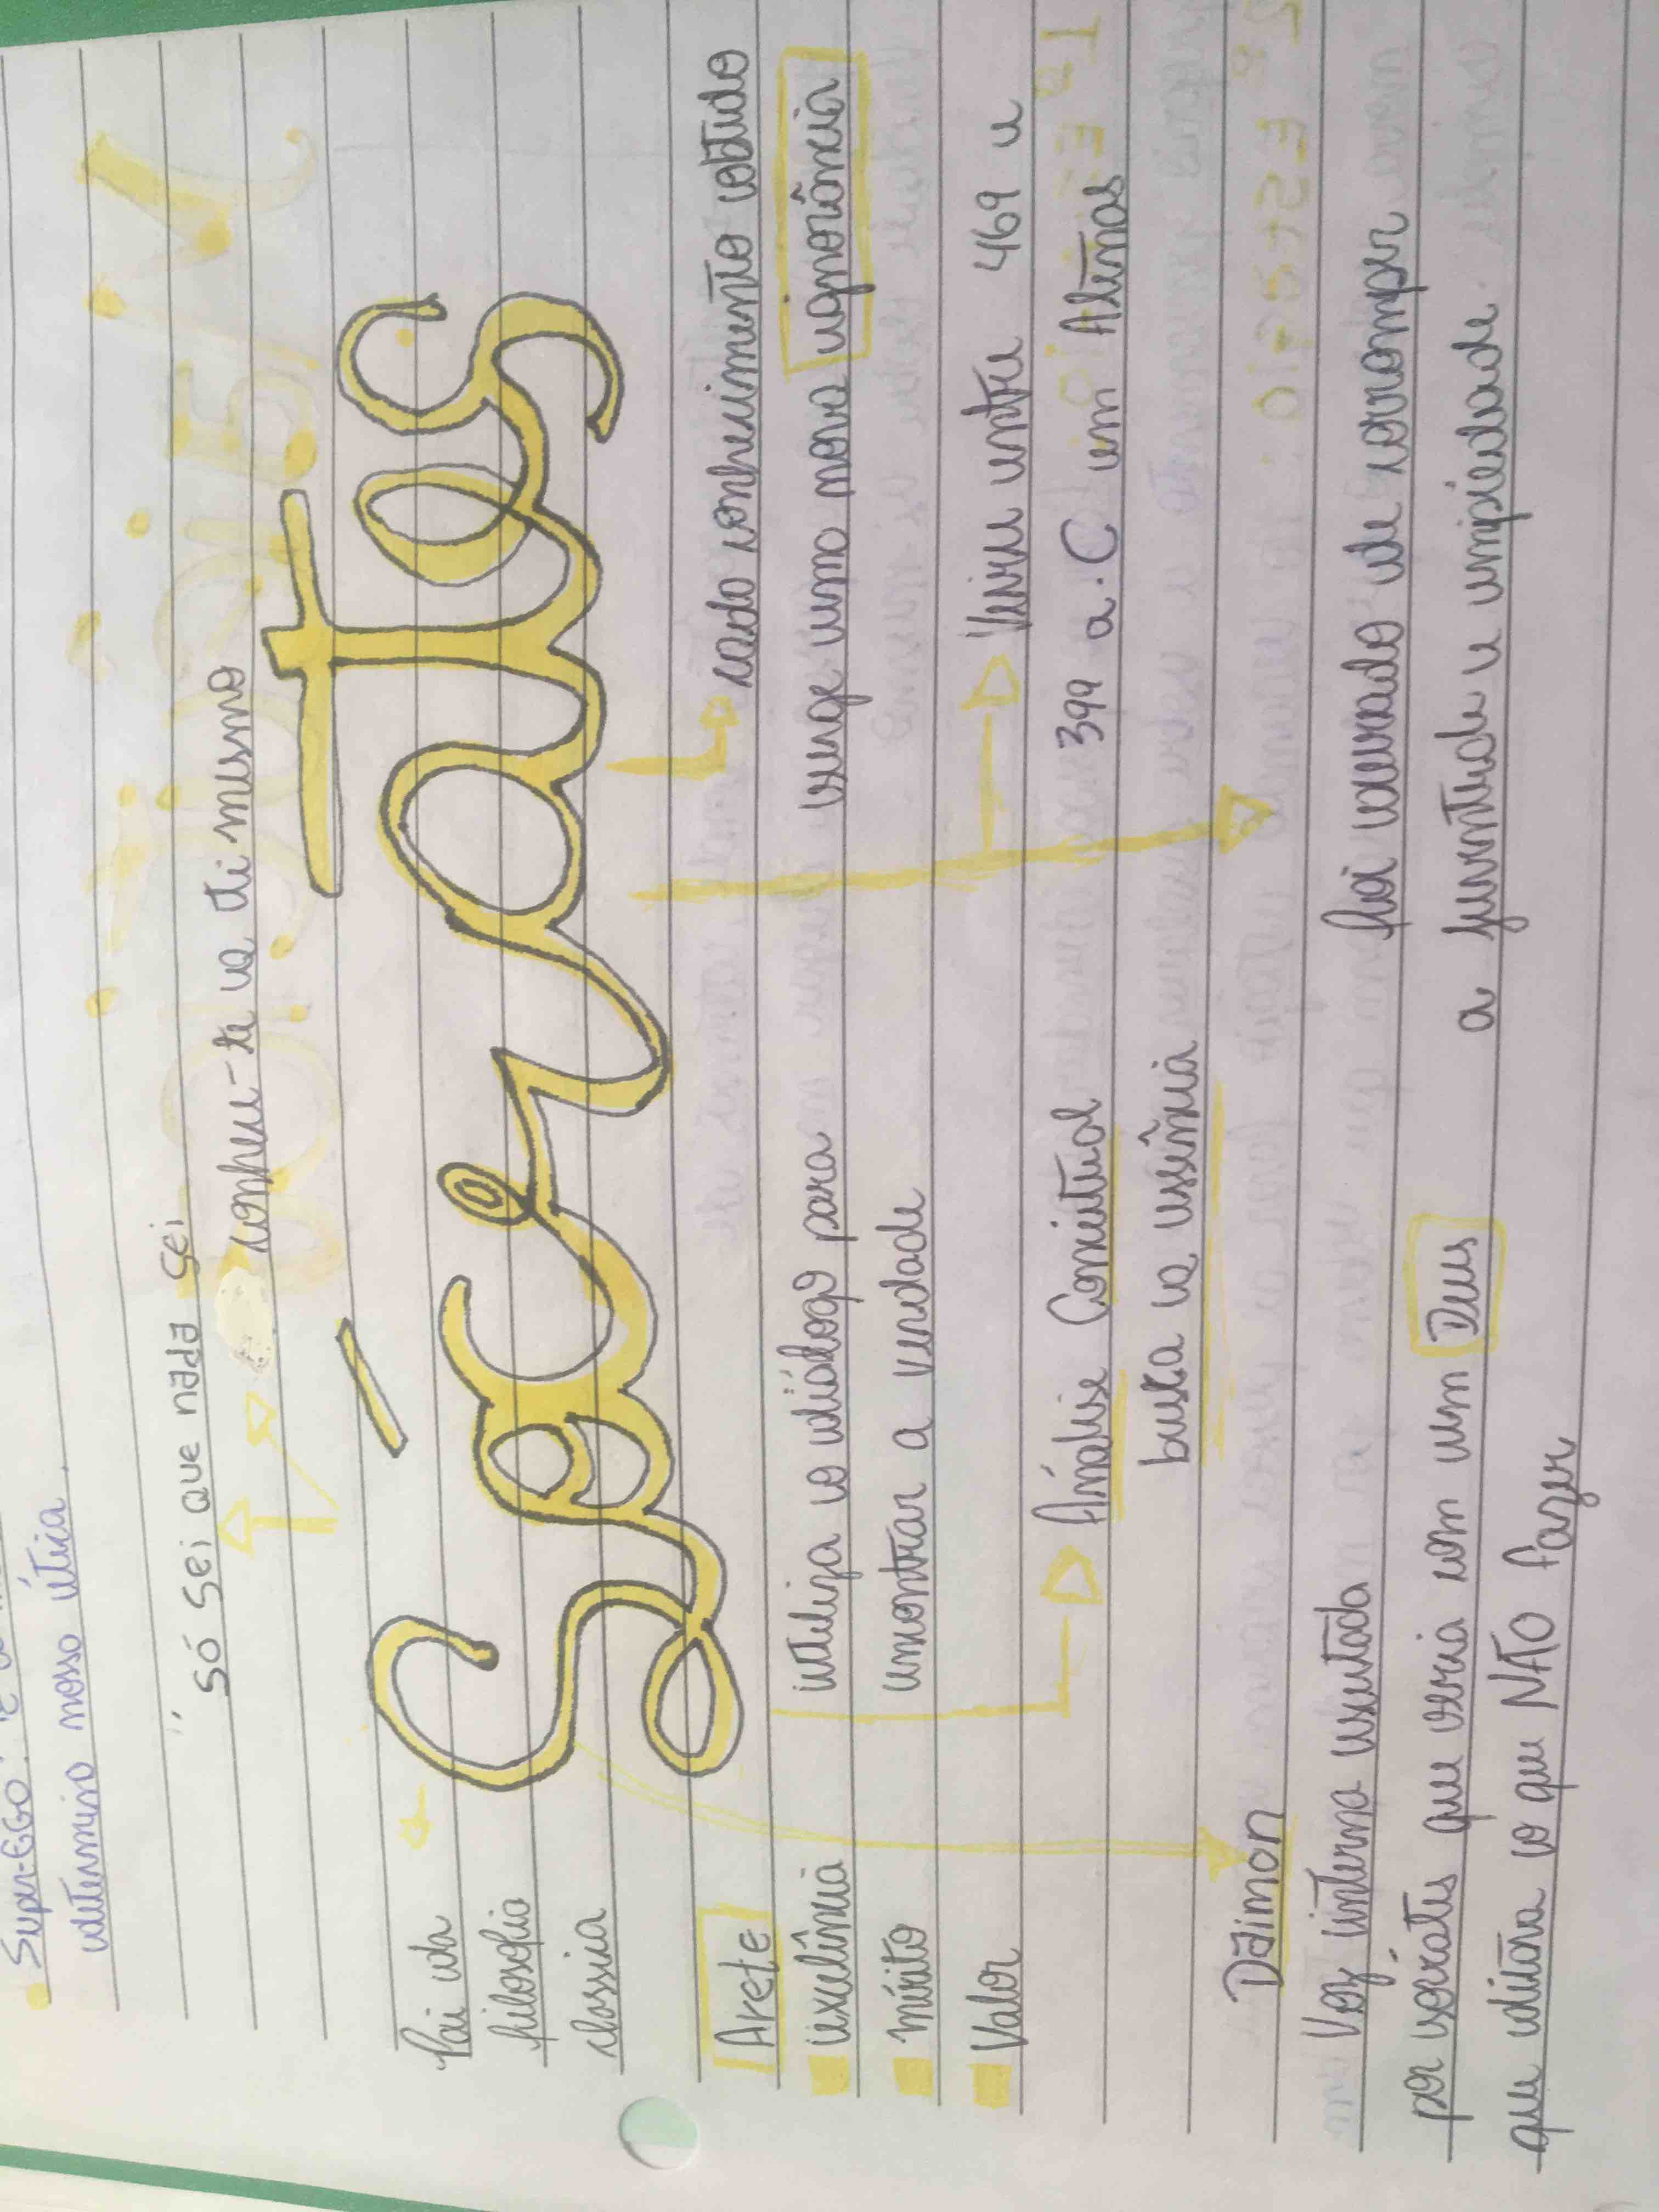 Super-EGO:
determina nosso ética.
"Só sei que nada sei
conhece-te a ti mesmo
Pai da
filosofia
clássica
Sócrates
Arete
excelência
mérito
Valor
utiliza o diálogo para
encontrar a verdade
cada conhecimento obtido
surge uma nova ignorância
Viveu entre 469 e
399 a.C em Atenas
Análise Conceitual
busca a essência
Daimon
Voz interna escutada
por sócrates que seria com um Deus
que ditava o que NÃO fazer
foi acusado de corromper
a juventude e impiedade.